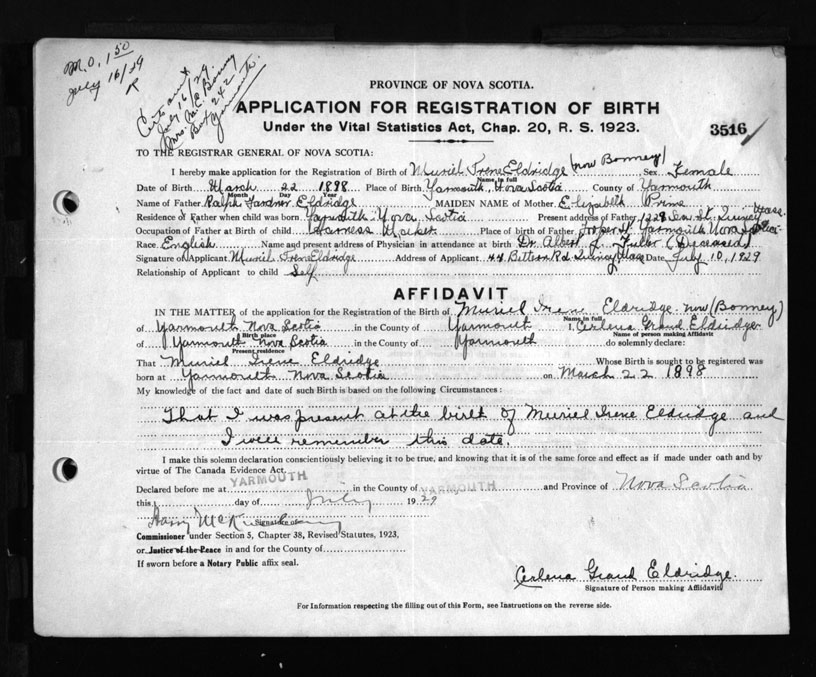 M.O. 1.50
July 16/29
Cert sent
July 16/29
Mrs. M.E. Bonney
Box 242
Yarmouth.
PROVINCE OF NOVA SCOTIA.
APPLICATION FOR REGISTRATION OF BIRTH
Under the Vital Statistics Act, Chap. 20, R. S. 1923.
3516
TO THE REGISTRAR GENERAL OF NOVA SCOTIA:
I hereby make application for the Registration of Birth of Muriel Irene Eldridge (now Bonney) Sex Female
Name in full
Date of Birth March 22 1898 Place of Birth Yarmouth, Nova Scotia County of Yarmouth
Month Day Year
Name of Father Ralph Gardner Eldridge MAIDEN NAME of Mother Elizabeth Prime
Residence of Father when child was born Yarmouth Nova Scotia Present address of Father 1228 Sea St. Quincy Mass.
Occupation of Father at Birth of child Harness Maker Place of birth of Father St. Yarmouth Nova Scotia
Race English Name and present address of Physician in attendance at birth Dr. Albert J. Fuller (Deceased)
Signature of Applicant Muriel Irene Eldridge Address of Applicant 44 Rd Quincy Mass Date July 10, 1929
Relationship of Applicant to child Self
AFFIDAVIT
IN THE MATTER of the application for the Registration of the Birth of Muriel Irene Eldridge now (Bonney)
Name in full
of Yarmouth Nova Scotia in the County of Yarmouth I, Cerlena Grand Eldridge
Birth place Name of person making Affidavit
of Yarmouth Nova Scotia in the County of Yarmouth do solemnly declare:
Present residence
That Muriel Irene Eldridge Whose Birth is sought to be registered was
born at Yarmouth Nova Scotia on March 22 1898
My knowledge of the fact and date of such Birth is based on the following Circumstances:
That I was present at the birth of Muriel Irene Eldridge and
I well remember this date.
I make this solemn declaration conscientiously believing it to be true, and knowing that it is of the same force and effect as if made under oath and by
virtue of The Canada Evidence Act.
Declared before me at YARMOUTH in the County of YARMOUTH and Province of Nova Scotia
this day of July 1929
Harry
Signature of
Commissioner under Section 5, Chapter 38, Revised Statutes, 1923.
or Justice of the Peace in and for the County of
If sworn before a Notary Public affix seal.
Cerlena Grand Eldridge
Signature of Person making Affidavit
For Information respecting the filling out of this Form, see Instructions on the reverse side.